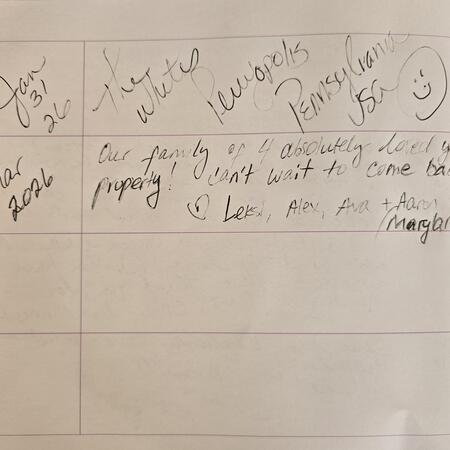 Jan
31
26
The
Whites
Perryopolis
Pennsylvania
USA
Mar
2026
Our family of 4 absolutely loved y
property! Can't wait to come ba
♡ Leksi, Alex, Ava + Aaron
Marylan